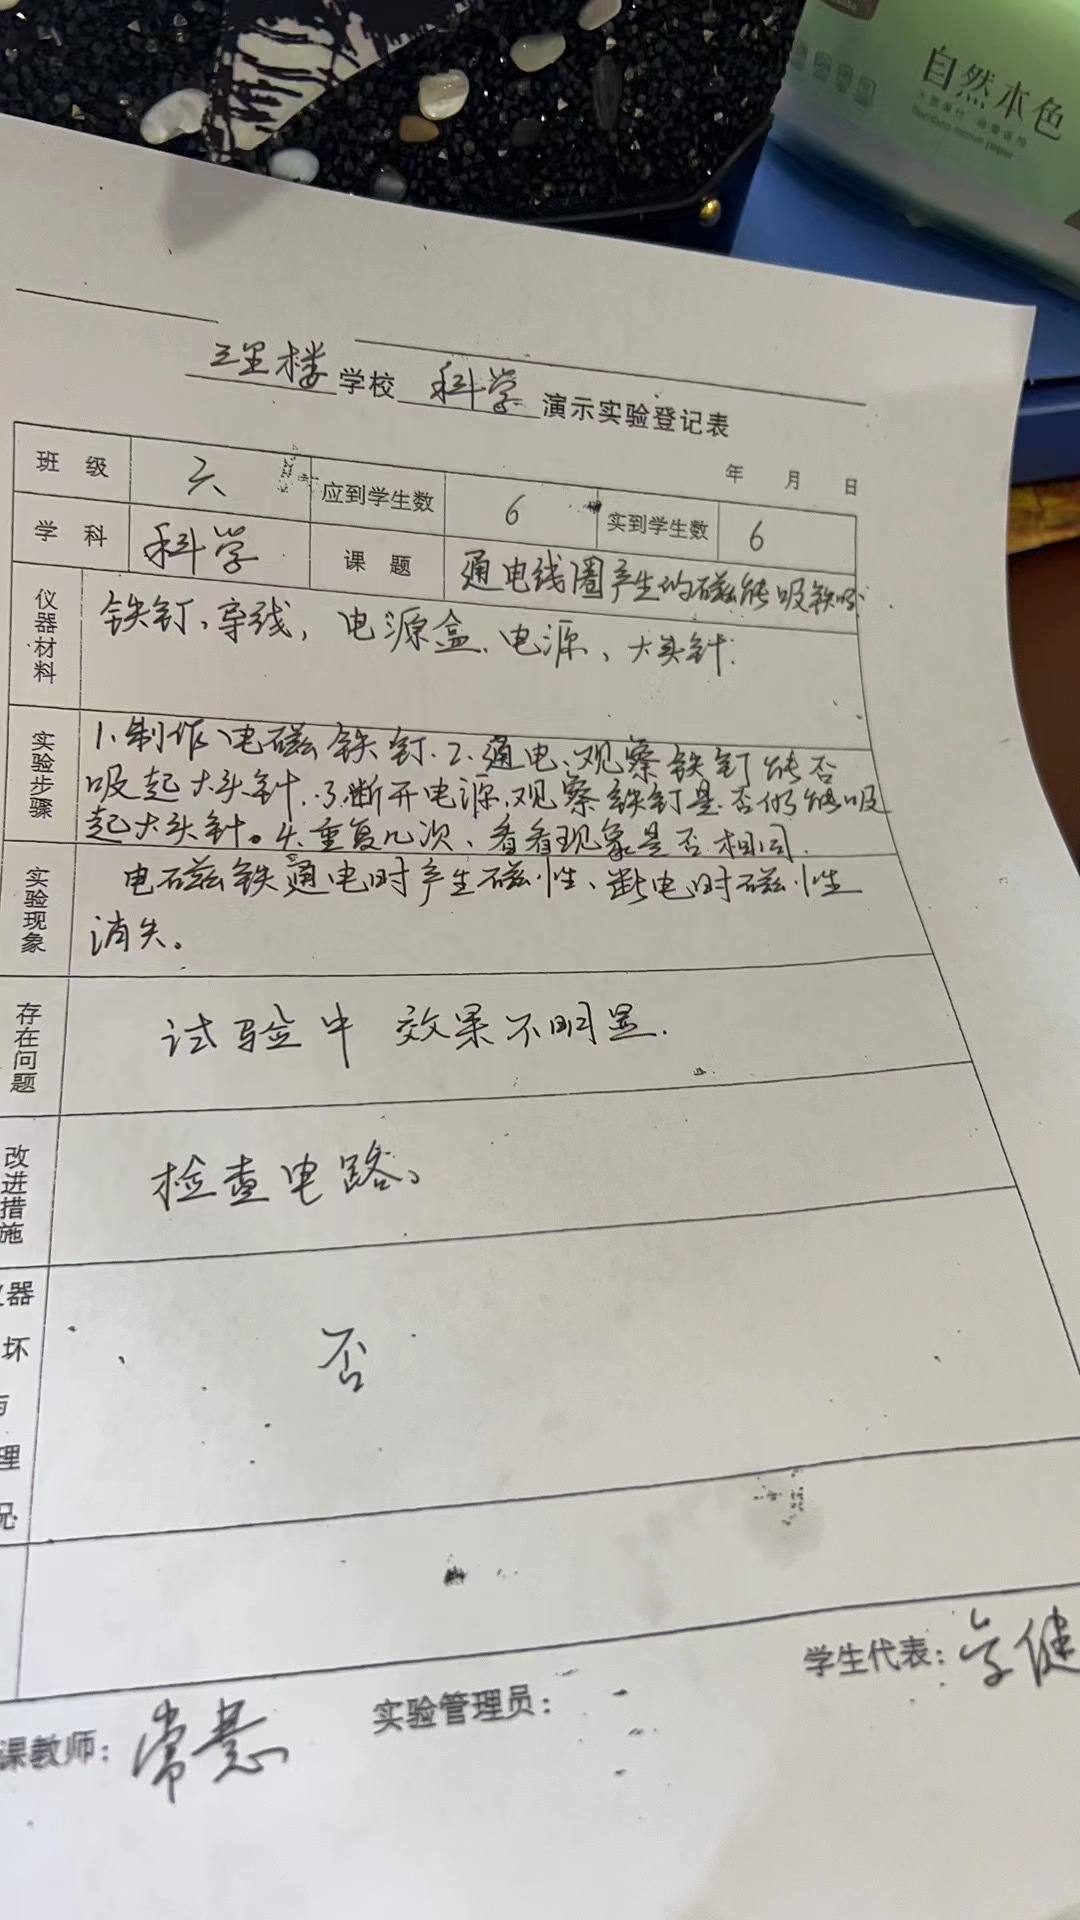 自然本色
Bamboo tissue paper
三里楼学校 科学 演示实验登记表
年 月 日
班 级 六 应到学生数 6 实到学生数 6
学 科 科学 课 题 通电线圈产生的磁能吸铁吗
仪器材料 铁钉、导线、电源盒、电源、大头针.
实验步骤 1.制作电磁铁钉.2.通电、观察铁钉能否
吸起大头针.3.断开电源,观察铁钉是否仍能吸
起大头针。4.重复几次、看看现象是否相同.
实验现象 电磁铁通电时产生磁性、断电时磁性
消失。
存在问题 试验中 效果不明显.
改进措施 检查电路。
器
坏
理
况
否
学生代表:
课教师: 常慧 实验管理员: